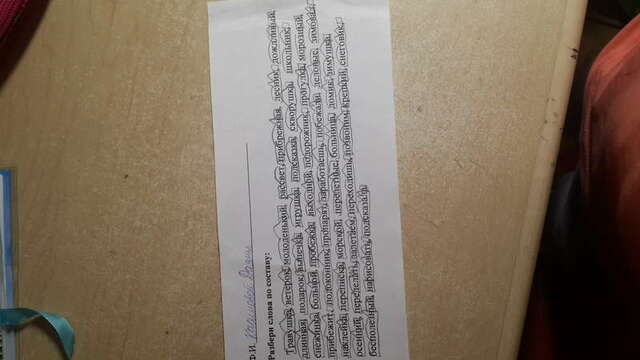 Ф.И. Халиловой Дании
Разбери слова по составу:
Травушка, ветерок, молоденький, рассвет, прибрежная, лесник, дождливый,
длинная, подарок, выпечка, игрушка, подсказка, скворушка, школьник,
снежинка, больной, пробежка, выходной, подорожник, прогулка, морозный,
прибежит, подоконник, пропарят, заработаешь, побежали, деловые, зимовал,
наклейка, переписка, морской, перелетные, больница, домик, зимушка,
осенний, переделать, залетаем, переходишь, позвоним, крепкий, снеговик,
бесполезный, нарисовать, подсказала.